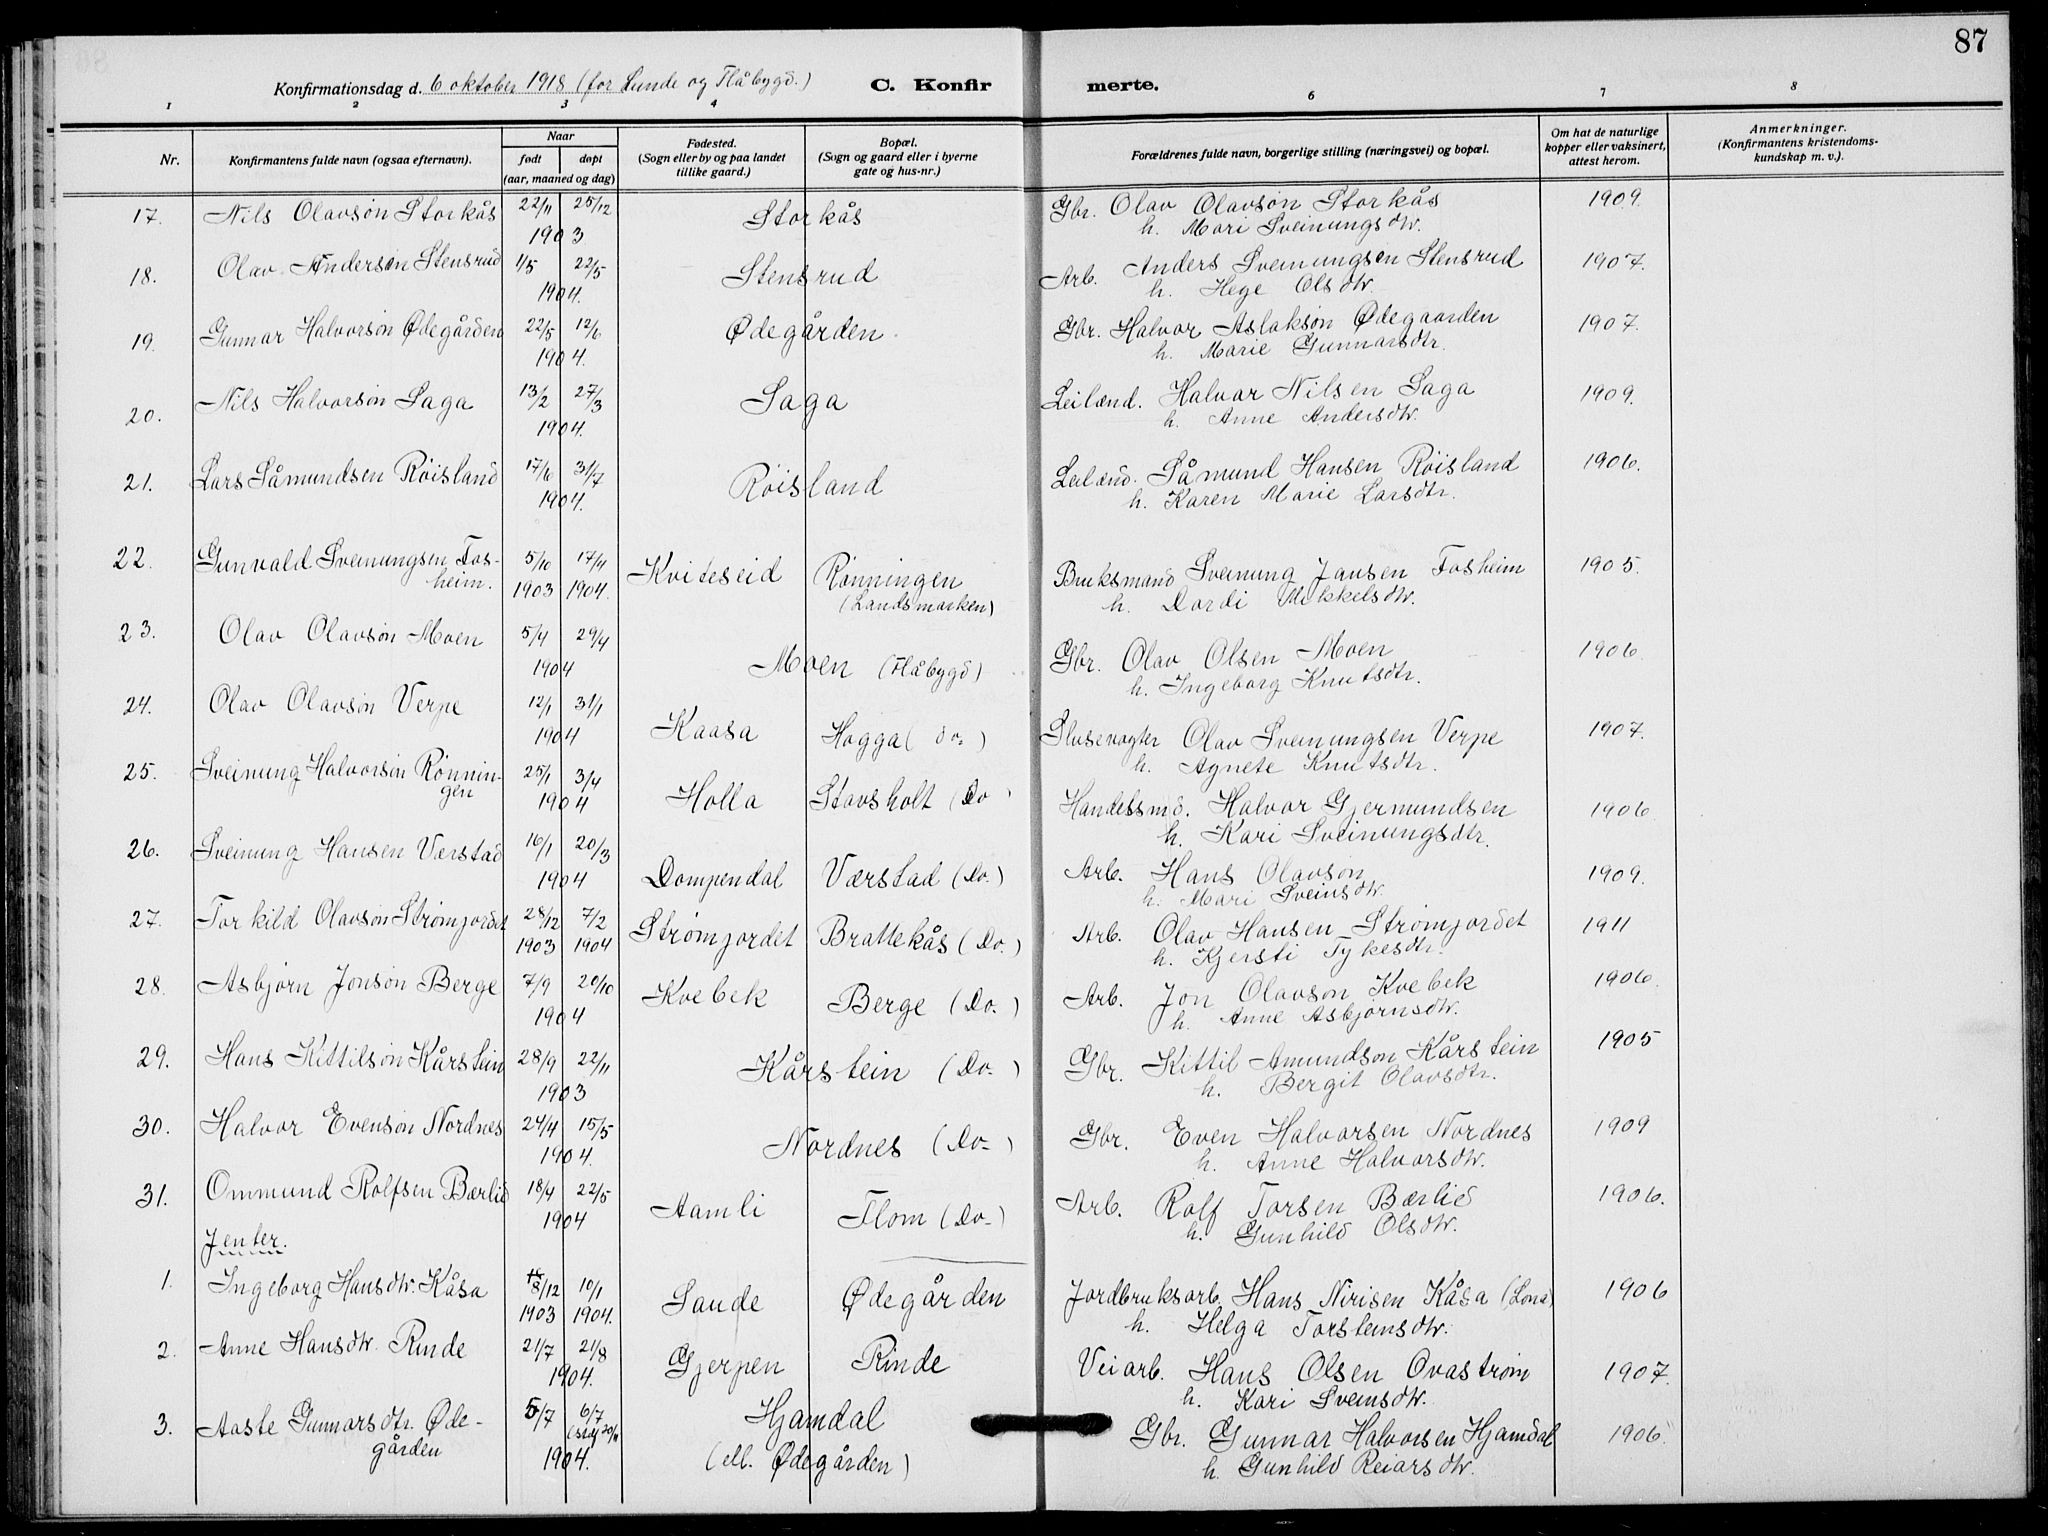 87
Konfirmationsdag d. 6 oktober 1918 (for Lunde og Flåbygd.) C. Konfirmerte.
1 2 3 4 6 7 8
Nr. Konfirmantens fulde navn (ogsaa efternavn). Naar født døpt (aar, maaned og dag) Fødested. (Sogn eller by og paa landet tillike gaard.) Bopæl. (Sogn og gaard eller i byerne gate og hus-nr.) Forældrenes fulde navn, borgerlige stilling (næringsvei) og bopæl. Om hat de naturlige kopper eller vaksinert, attest herom. Anmerkninger. (Konfirmantens kristendomskundskap m. v.)
17. Nils Olavson Storkås 22/11 25/12 Storkås Gbr. Olav Olavson Storkås 1909.
1903 h. Mari Sveinungsdtr.
18. Olav Anderson Stensrud 1/5 22/5 Stensrud Arb. Anders Sveinungsen Stensrud 1907.
1904. h. Hege Olsdtr.
19. Gunnar Halvorson Ødegården 22/5 12/6 Ødegården Gbr. Halvor Aslakson Ødegaarden 1907.
1904. h. Marie Gunnarsdtr.
20. Nils Halvorson Saga 13/2 27/3 Saga Leilænd. Halvar Nilsen Saga 1909.
1904. h. Anne Andersdtr.
21. Lars Såmundsen Røisland 17/6 31/7 Røisland Leilænd. Såmund Hansen Røisland 1906.
1904. h. Karen Marie Larsdtr.
22. Gunvald Sveinungsen Fosheim. 5/10 17/4 Kviteseid Rønningen Bruksmand Sveinung Jansen Fosheim 1905.
1903 1904. (Landsmarken) h. Dordi Mikkelsdtr.
23. Olav Olavson Moen 5/4 29/4 Moen (Flåbygd) Gbr. Olav Olsen Moen 1906.
1904 h. Ingeborg Knutsdtr.
24. Olav Olavson Verpe 12/1 31/1 Kaasa Hogga (do.) Slusevogter Olav Sveinungsen Verpe 1907.
1904 h. Agnete Knutsdtr.
25. Sveinung Halvorson Rønningen 25/1 3/4 Holla Stavsholt (Do) Handelsmd. Halvor Gjermundsen 1906.
1904 h. Kari Sveinungsdtr.
26. Sveinung Hansen Værstad 16/1 20/3 Dompendal Værstad (Do.) Arb. Hans Olavson 1909.
1904 h. Mari Sveinsdtr.
27. Torkild Olavson Strømjordet 28/12 7/2 Strømjordet Brattekås (Do.) Arb. Olav Hansen Strømjordet 1911
1903 1904 h. Kjersti Tykesdtr.
28. Asbjørn Jonson Berge 7/9 20/10 Kvebek Berge (Do.) Arb. Jon Olavson Kvebek 1906.
1904 h. Anne Asbjørnsdtr.
29. Hans Kittilson Kårstein 28/9 22/11 Kårstein (Do.) Gbr. Kittil Amundson Kårstein 1905
1903 h. Bergit Olavsdtr.
30. Halvor Evenson Nordnes 24/4 15/5 Nordnes (Do.) Gbr. Even Halvorsen Nordnes 1909
1904. h. Anne Halvorsdtr.
31. Ommund Rolfsen Bærlid 18/4 22/5 Aamli Flom (Do.) Arb. Rolf Torsen Bærlid 1906.
1904 h. Gunhild Olsdtr.
Jenter.
1. Ingeborg Hansdtr. Kåsa 8/12 10/1 Saude Ødegården Jordbruksarb. Hans Nirisen Kåsa (Lona) 1906
1903 1904. h. Helga Torsteinsdtr.
2. Anne Hansdtr. Rinde 21/7 21/8 Gjerpen Rinde Veiarb. Hans Olsen Ovastrøm 1907.
1904. h. Kari Sveinsdtr.
3. Aaste Gunnarsdtr. Ødegården 5/7 6/7 Hjamdal Gbr. Gunnar Halvorsen Hjamdal 1906.
1904. (ell. Ødegården) h. Gunhild Reiarsdtr.